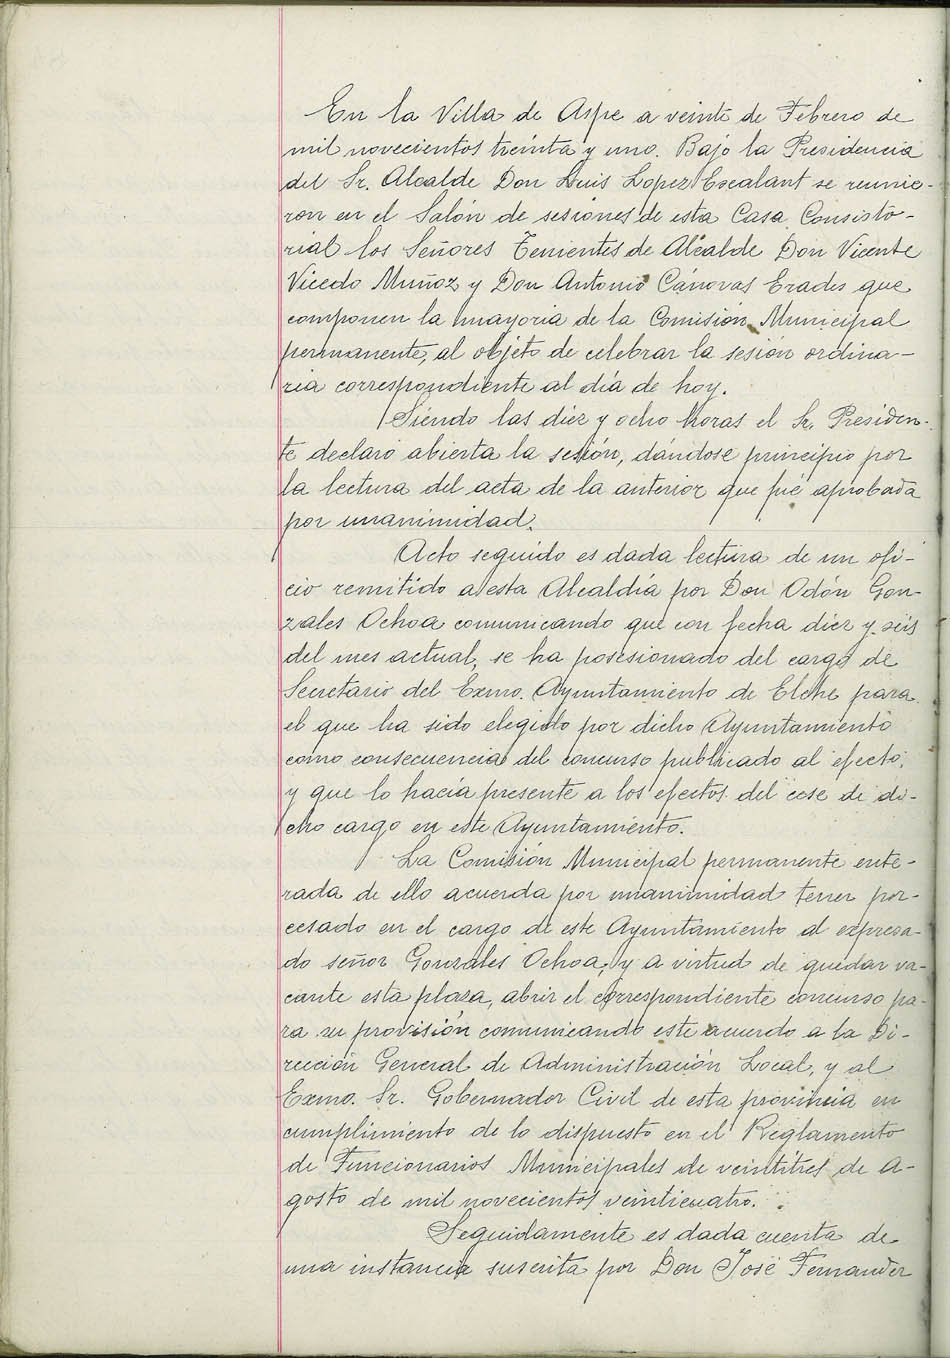 En la Villa de Aspe a veinte de Febrero de
mil novecientos treinta y uno. Bajo la Presidencia
del Sr. Alcalde Don Luis Lopez Escalant se reunie-
ron en el Salón de sesiones de esta Casa Consisto-
rial los Señores Tenientes de Alcalde Don Vicente
Vicedo Muñoz y Don Antonio Cánovas Erades que
componen la mayoria de la Comisión Municipal
permanente, al objeto de celebrar la sesión ordina-
ria correspondiente al día de hoy.
Siendo las diez y ocho horas el Sr. Presiden-
te declaró abierta la sesión, dándose principio por
la lectura del acta de la anterior que fué aprobada
por unanimidad.
Acto seguido es dada lectura de un ofi-
cio remitido a esta Alcaldía por Don Odón Gon-
zales Ochoa comunicando que con fecha diez y seis
del mes actual, se ha posesionado del cargo de
Secretario del Exmo. Ayuntamiento de Elche para
el que ha sido elegido por dicho Ayuntamiento
como consecuencia del concurso publicado al efecto,
y que lo hacía presente a los efectos del cese de di-
cho cargo en este Ayuntamiento.
La Comisión Municipal permanente ente-
rada de ello acuerda por unanimidad tener por
cesado en el cargo de este Ayuntamiento al expresa-
do señor Gonzales Ochoa, y a virtud de quedar va-
cante esta plaza, abrir el correspondiente concurso pa-
ra su provisión comunicando este acuerdo a la Di-
rección General de Administración Local, y al
Exmo. Sr. Gobernador Civil de esta provincia en
cumplimiento de lo dispuesto en el Reglamento
de Funcionarios Municipales de veintitres de A-
gosto de mil novecientos veinticuatro.
Seguidamente es dada cuenta de
una instancia suscrita por Don José Fernandez